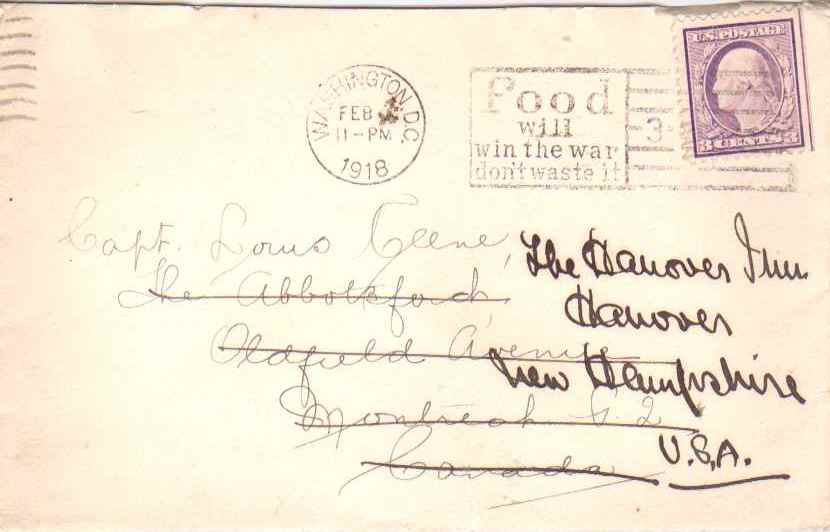 WASHINGTON, D.C.
FEB
11-PM
1918
Food
will
win the war
don't waste it
U.S. POSTAGE
3 CENTS 3
3
Capt. Louis Keene,
The Abbotsford,
Oldfield Avenue
Montreal P.Q.
Canada
The Hanover Inn
Hanover
New Hampshire
U.S.A.